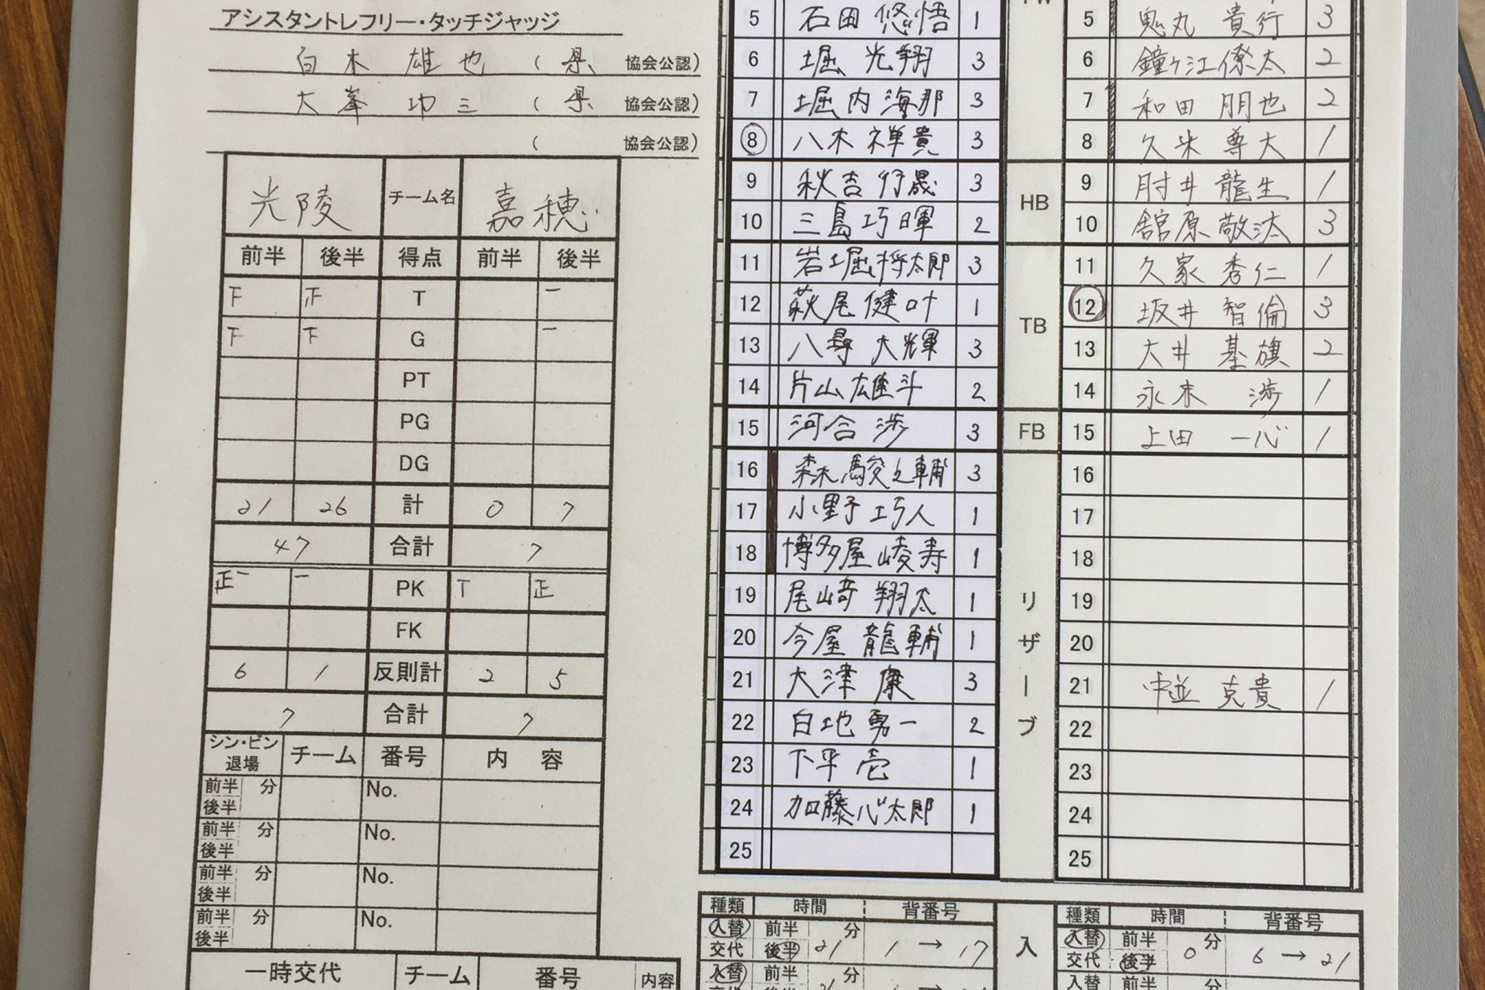 アシスタントレフリー・タッチジャッジ
白木 雄也 ( 県 協会公認)
大峯 功三 ( 県 協会公認)
( 協会公認)
光陵 チーム名 嘉穂
前半 後半 得点 前半 後半
下 正 T 一
下 下 G 一
PT
PG
DG
21 26 計 0 7
47 合計 7
正一 一 PK T 正
FK
6 1 反則計 2 5
7 合計 7
シン・ビン 退場 チーム 番号 内容
前半 後半 分 No.
前半 後半 分 No.
前半 後半 分 No.
前半 後半 分 No.
一時交代 チーム 番号 内容
5 石田 悠悟 1
6 堀 光翔 3
7 堀内 海那 3
8 八木 禅貴 3
9 秋吉 行晟 3
10 三島 巧暉 2
11 岩堀 将太郎 3
12 萩尾 健叶 1
13 八尋 大輝 3
14 片山 雄斗 2
15 河合 渉 3
16 森 駿之輔 3
17 小野 巧人 1
18 博多屋 崚寿 1
19 尾崎 翔太 1
20 今屋 龍輔 1
21 大津 康 3
22 白地 勇一 2
23 下平 壱 1
24 加藤 心太郎 1
25
HB
TB
FB
リザーブ
5 鬼丸 貴行 3
6 鐘ヶ江 僚太 2
7 和田 朋也 2
8 久米 尊大 1
9 肘井 龍生 1
10 舘原 敬汰 3
11 久家 秀仁 1
12 坂井 智倫 3
13 大井 基旗 2
14 永末 渉 1
15 上田 一心 1
16
17
18
19
20
21 中並 克貴 1
22
23
24
25
種類 時間 背番号
入替 交代 前半 後半 21 分 1 → 17
入替 前半 分
入
種類 時間 背番号
入替 交代 前半 後半 0 分 6 → 21
入替 前半 分